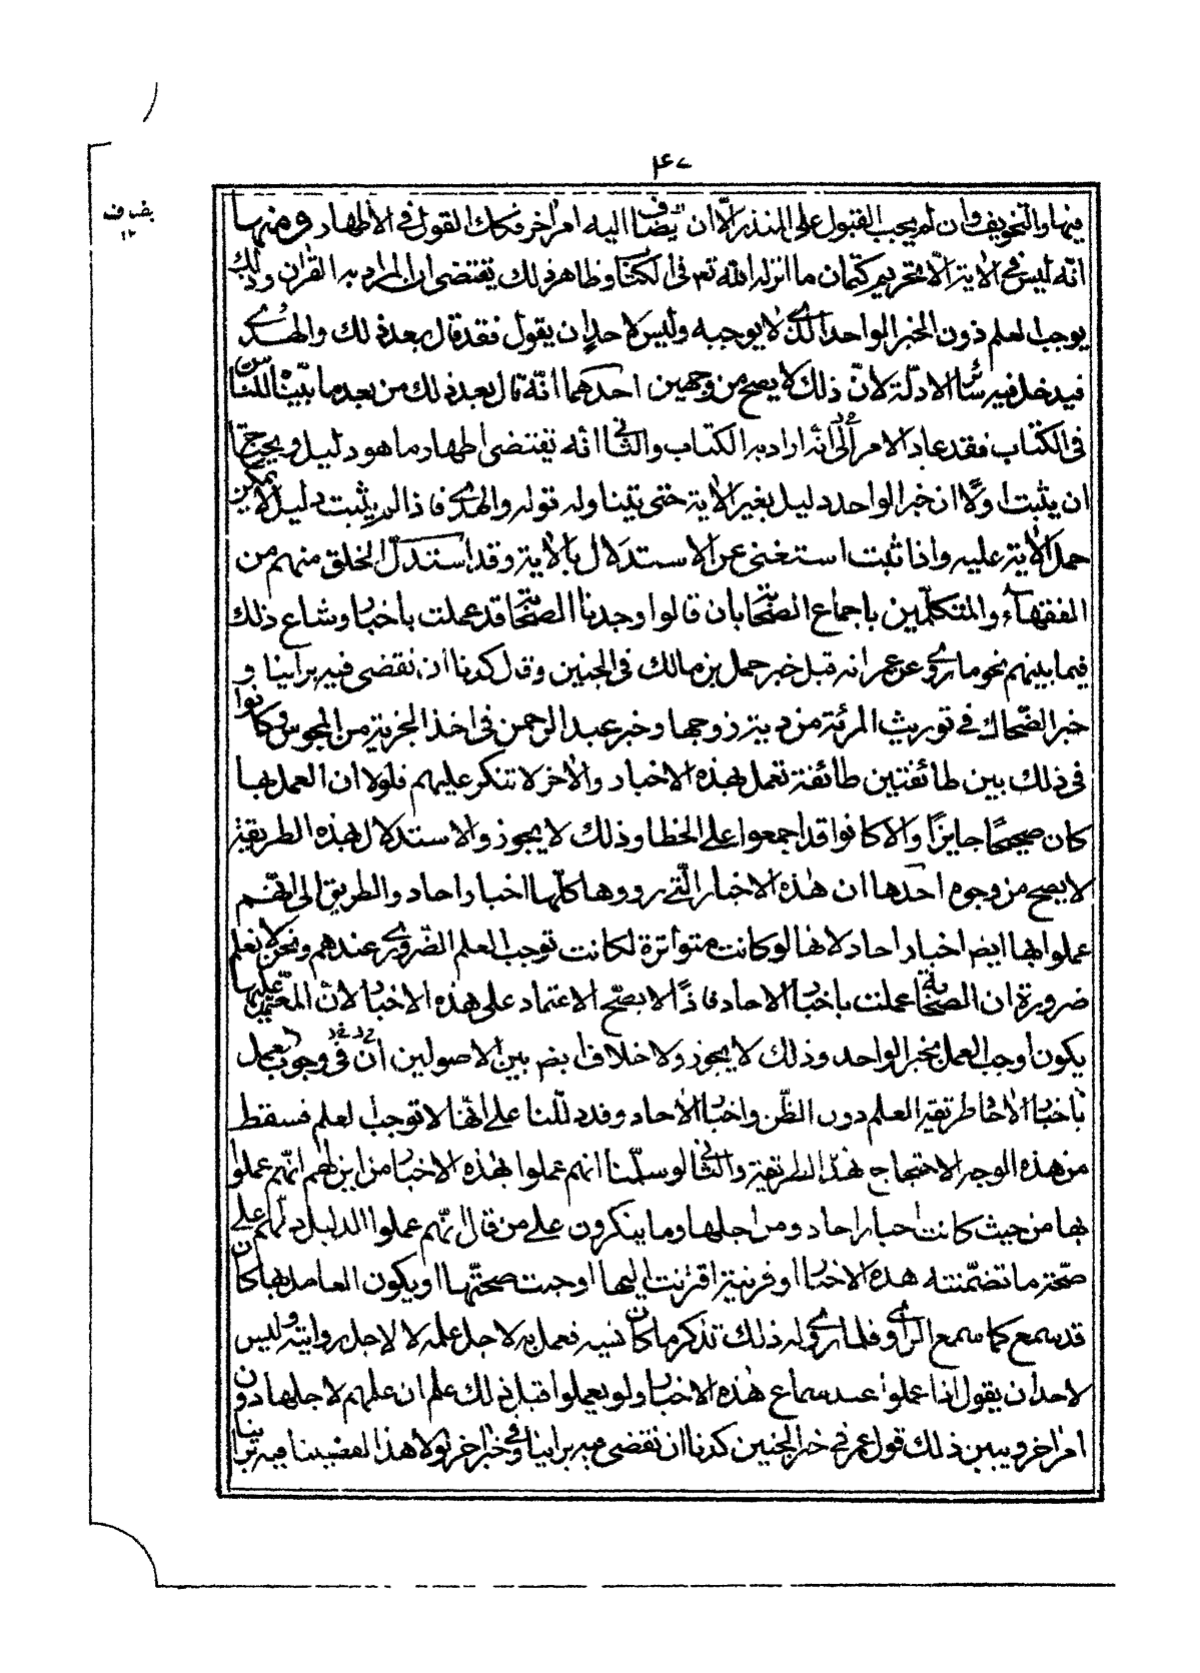 ٤٧
يضاف
١٢
فيها والتخويف وان لم يجب القبول على المنذر الّا ان يضاف اليه امر اخر فكك القول في الأظهار ومنها
انّه ليس في الأية الّا تحريم كتمان ما انزله الله تعم في الكتا وظاهر ذلك يقتضى ان المراد به القران وذلك
يوجب لعلم دون الخبر الواحد الّذي لا يوجبه وليس لاحد ان يقول فقد قال بعد ذلك والهدى
فيدخل فيه سا الادلّة لانّ ذلك لا يصح من وجهين احدهما انّه قال بعد ذلك من بعد ما بيّنّاه للنّاس
فى الكتاب فقد عاد الامر الى انّه اراد به الكتاب والثّانى انّه يقتضى اظهار ما هو دليل ويحتاج
ان يثبت اولًا ان خبر الواحد دليل بغير الأية حتى يتناوله قوله والهدى فاذا لم يثبت دليل لا يمكن
حمل الأية عليه واذا ثبت استغنى عن الاستدلال بالأية وقد استدلّ الخلق منهم من
الفقهآء والمتكلّمين باجماع الصّحابة بان قالوا وجدنا الصّحابة قد عملت باخبار وشاع ذلك
فيما بينهم نحو ما روى عن عمر انه قبل خبر حمل بن مالك فى الجنين وقال كدنا ان نقضى فيه براينا و
خبر الضّحاك في توريث المرئة من دية زوجها وخبر عبد الرحمن فى اخذ الجزية من المجوس وكانوا
فى ذلك بين طائفتين طائفة تعمل بهذه الاخبار والأخر لا تنكر عليهم فلولا ان العمل بها
كان صحيحًا جايزًا والا كانوا قد اجمعوا على الخطا وذلك لا يجوز والاستدلال بهذه الطريقة
لا يصح من وجوه احدها ان هذه الاخبار الّتى رووها كلّها اخبار احاد والطريق الى انّهم
عملوا بها ايضم اخبار احاد لانها لو كانت متواترة لكانت توجب العلم الضّرورى عندهم ونحن لا نعلم
ضرورة ان الصحابة عملت باخبار الاحاد فاذًا لا يصّح الاعتماد على هذه الاخبار لانّ المعتمد عليها
يكون اوجب العمل بخبر الواحد وذلك لا يجوز ولا خلاف ايضم بين الاصولين ان فى وجوب العمل
باخبار الأحاد طريقة العلم دون الظّن واخبار الأحاد وقد دلّلنا على انّها لا توجب لعلم فسقط
من هذه الوجه الاحتجاج بهذه الطريقة والثّانى لو سلّمنا انهم عملوا بهذه الاخبار من اين لهم انّهم عملوا
بها من حيث كانت اخبار احاد ومن اجلها وما ينكرون على من قال انّهم عملوا الدليل دلّهم على
صحّة ما تضمّنته هذه الاخبار او قرينة اقترنت اليها اوجبت صحتّها او يكون العامل بها كان
قد سمع كما سمع الرّاوى فلما روى له ذلك تذكر ما كان نسيه فعمل به لاجل علمه لا لاجل روايته وليس
لاحد ان يقول اذا عملوا عند سماع هذه الاخبار ولو يعملوا قبل ذلك علم ان علمهم لاجلها دون
امر اخر ويبين ذلك قول عمر في خبر الجنين كدنا ان نقضى فيه براينا وفى خبر اخر لولا هذا لقضينا فيه براينا